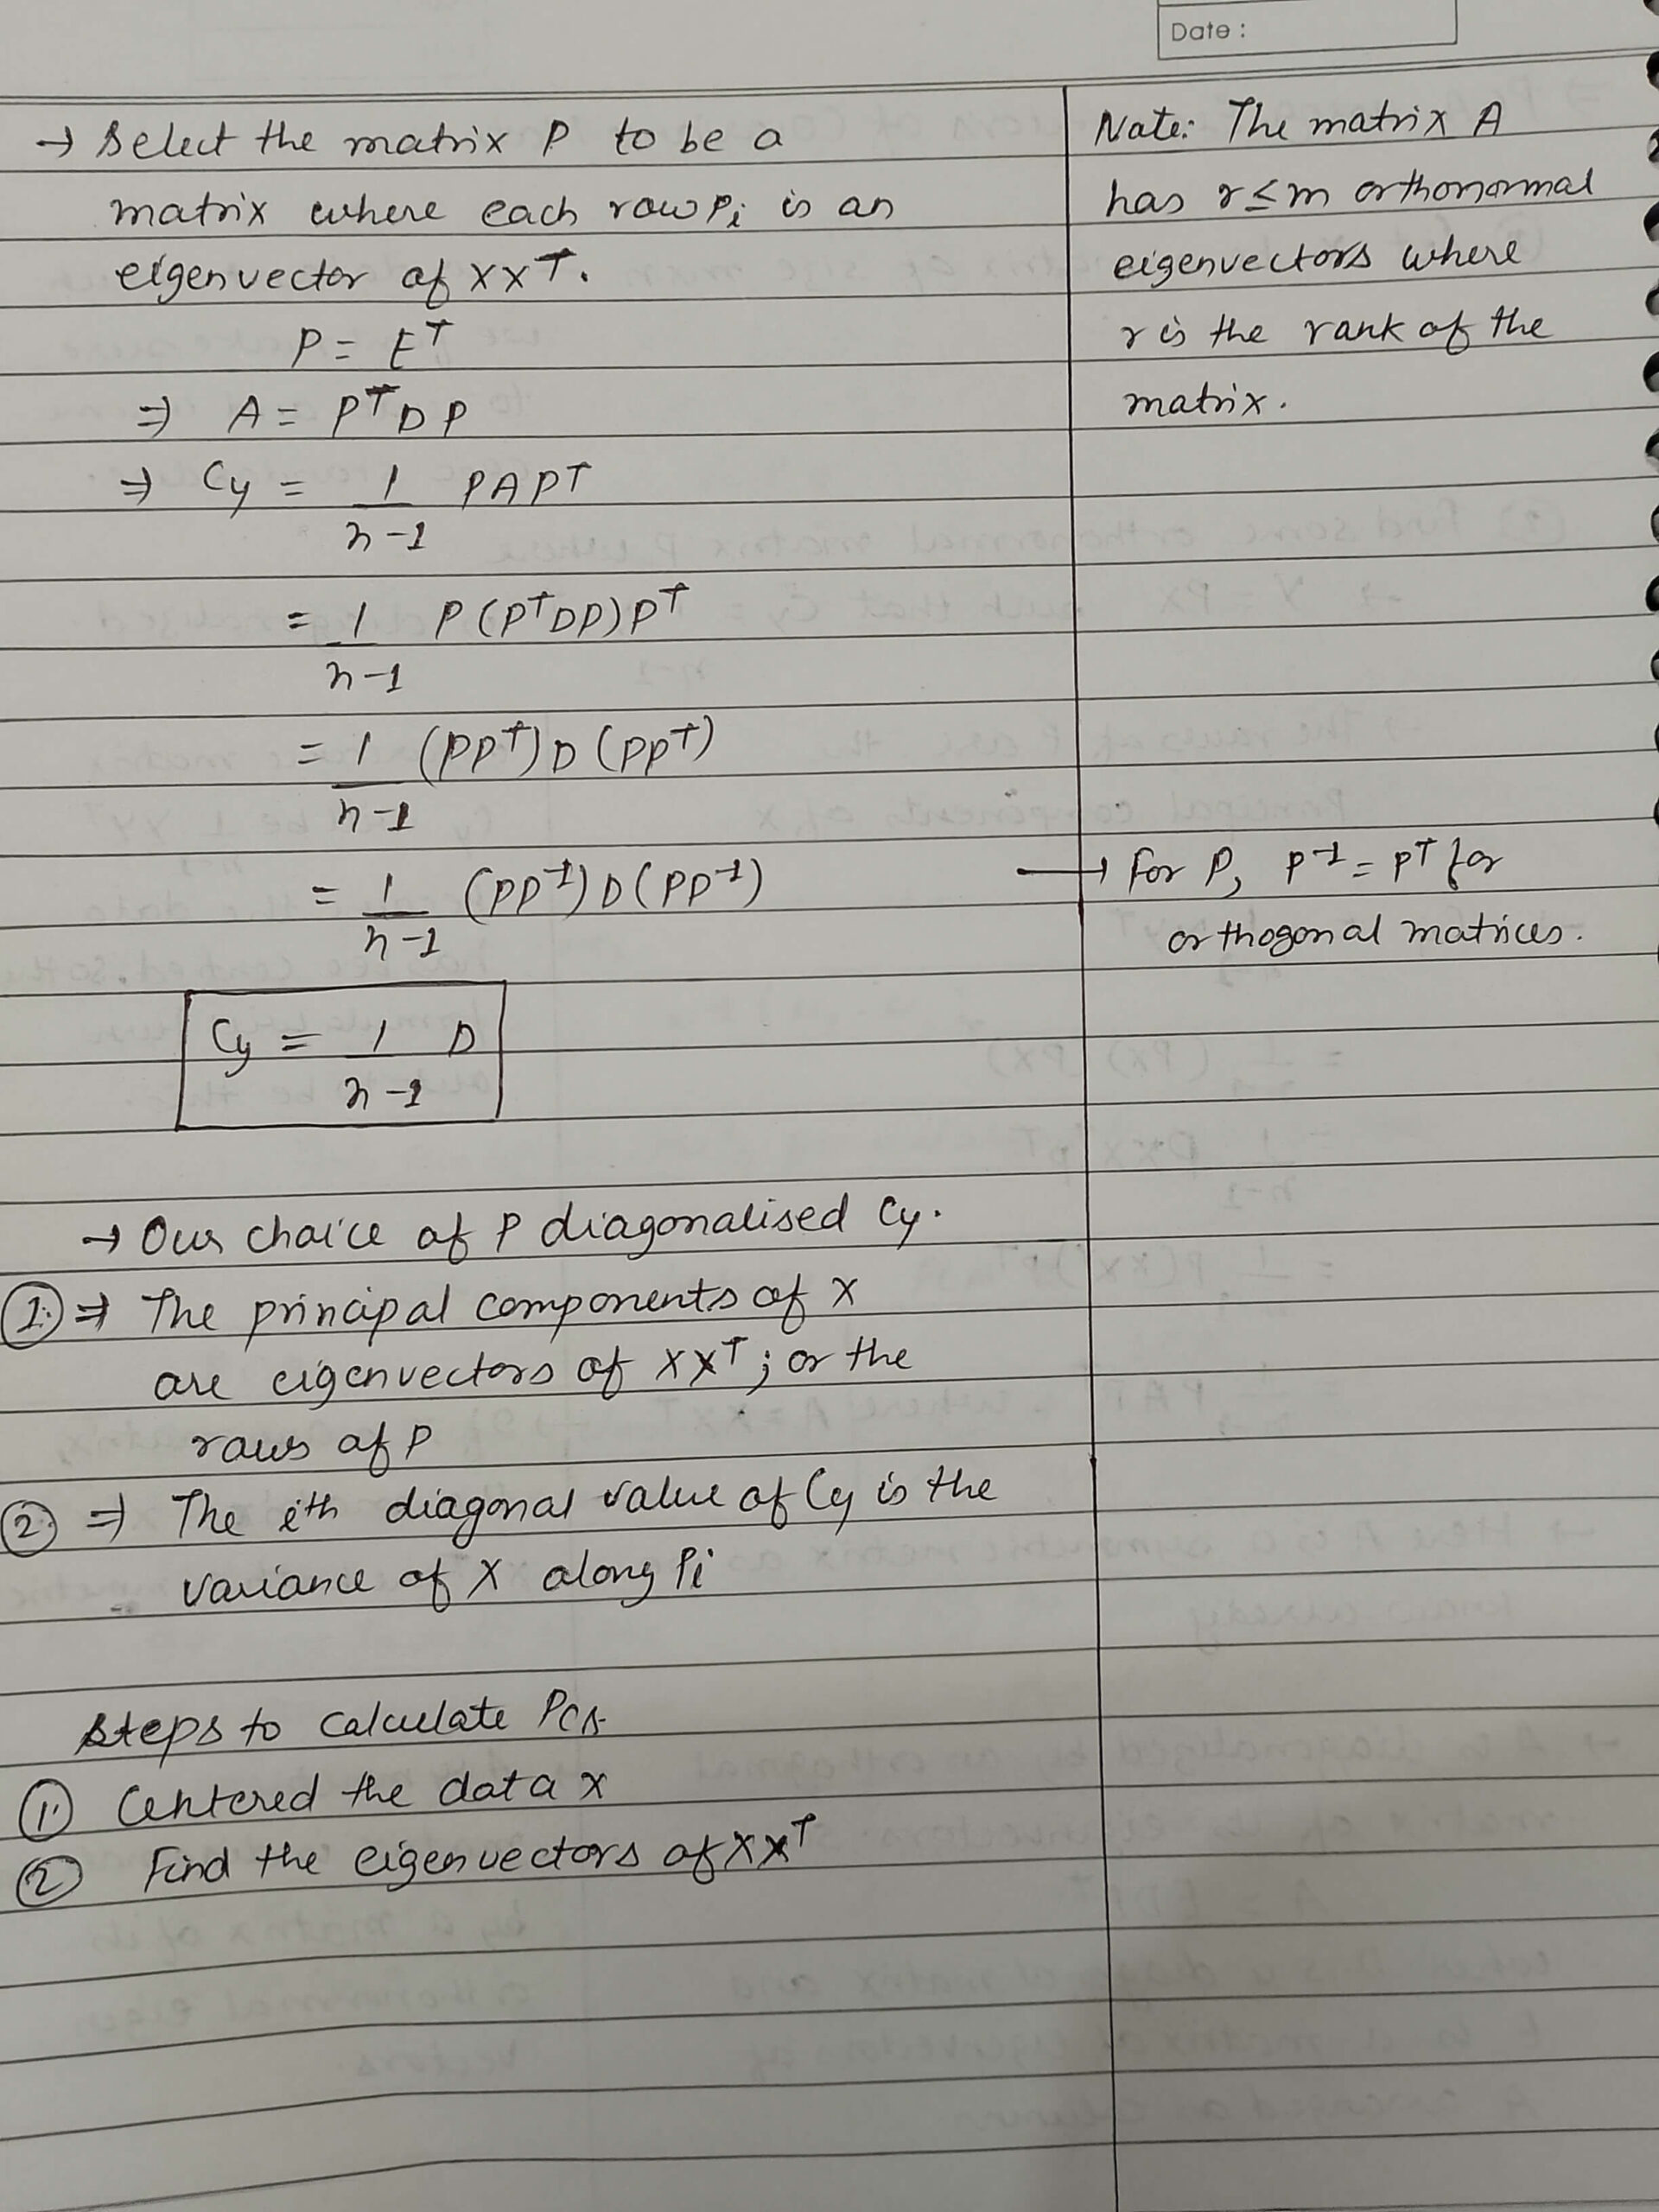 Date :
→ Select the matrix P to be a
matrix where each row pi is an
eigenvector of XXᵀ.
P = Eᵀ
⇒ A = PᵀDP
⇒ Cy = 1/(n-1) PAPᵀ
= 1/(n-1) P(PᵀDP)Pᵀ
= 1/(n-1) (PPᵀ)D(PPᵀ)
= 1/(n-1) (PP⁻¹)D(PP⁻¹)
Cy = 1/(n-1) D
→ Our choice of P diagonalised Cy.
① ⇒ The principal components of X
are eigenvectors of XXᵀ; or the
rows of P
② ⇒ The ith diagonal value of Cy is the
variance of X along Pi
Steps to calculate PCA
① Centered the data x
② Find the eigenvectors of XXᵀ
Note: The matrix A
has r≤m orthonormal
eigenvectors where
r is the rank of the
matrix.
→ For P, P⁻¹ = Pᵀ for
orthogonal matrices.